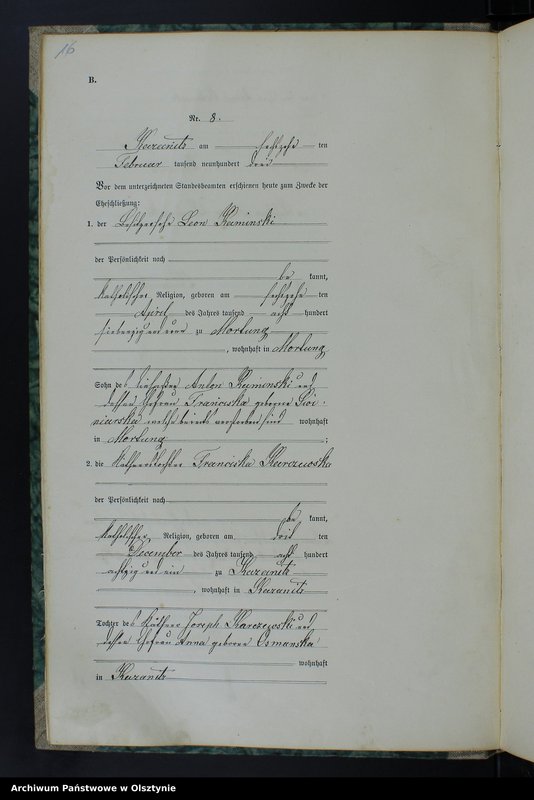 16
B.
Nr. 8.
Kazanitz am sechszehn ten
Februar tausend neunhundert drei
Vor dem unterzeichneten Standesbeamten erschienen heute zum Zwecke der
Eheschließung:
1. der Besitzersohn Leon Kaminski
der Persönlichkeit nach
be kannt,
katholischer Religion, geboren am sechszehn ten
April des Jahres tausend acht hundert
siebenzig und neun zu Mortung
, wohnhaft in Mortung
Sohn des Anton Kaminski und
dessen Ehefrau Franciska geborene
welche bereits verstorben sind wohnhaft
in Mortung ;
2. die Käthnertochter Franciska Karczewska
der Persönlichkeit nach
be kannt,
katholischer Religion, geboren am drei ten
December des Jahres tausend acht hundert
achtzig und ein zu Kazanitz
, wohnhaft in Kazanitz
Tochter des Käthners Joseph Karczewski und
dessen Ehefrau Anna geborene Osmanska
wohnhaft
in Kazanitz
Archiwum Państwowe w Olsztynie